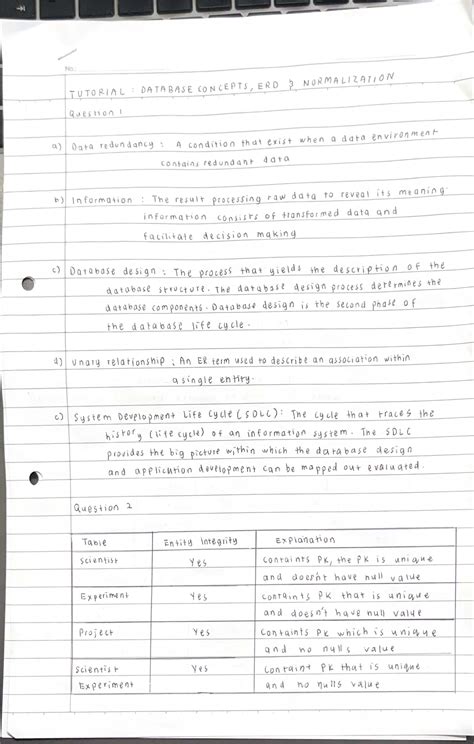 No.
TUTORIAL : DATABASE CONCEPTS, ERD & NORMALIZATION
Question 1
a) Data redundancy : A condition that exist when a data environment
contains redundant data
b) Information : The result processing raw data to reveal its meaning.
information consists of transformed data and
facilitate decision making
c) Database design : The process that yields the description of the
database structure. The database design process determines the
database components. Database design is the second phase of
the database life cycle.
d) Unary relationship : An ER term used to describe an association within
a single entity.
e) System Development Life Cycle (SDLC): The cycle that traces the
history (life cycle) of an information system. The SDLC
provides the big picture within which the database design
and application development can be mapped out evaluated.
Question 2
Table Entity Integrity Explanation
Scientist Yes Containts PK, the PK is unique
and doesn't have null value
Experiment Yes Containts PK that is unique
and doesn't have null value
Project Yes Containts PK which is unique
and no nulls value
Scientist Yes Containt PK that is unique
Experiment and no nulls value